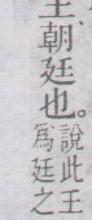 王、朝廷也。
說此王
爲廷之